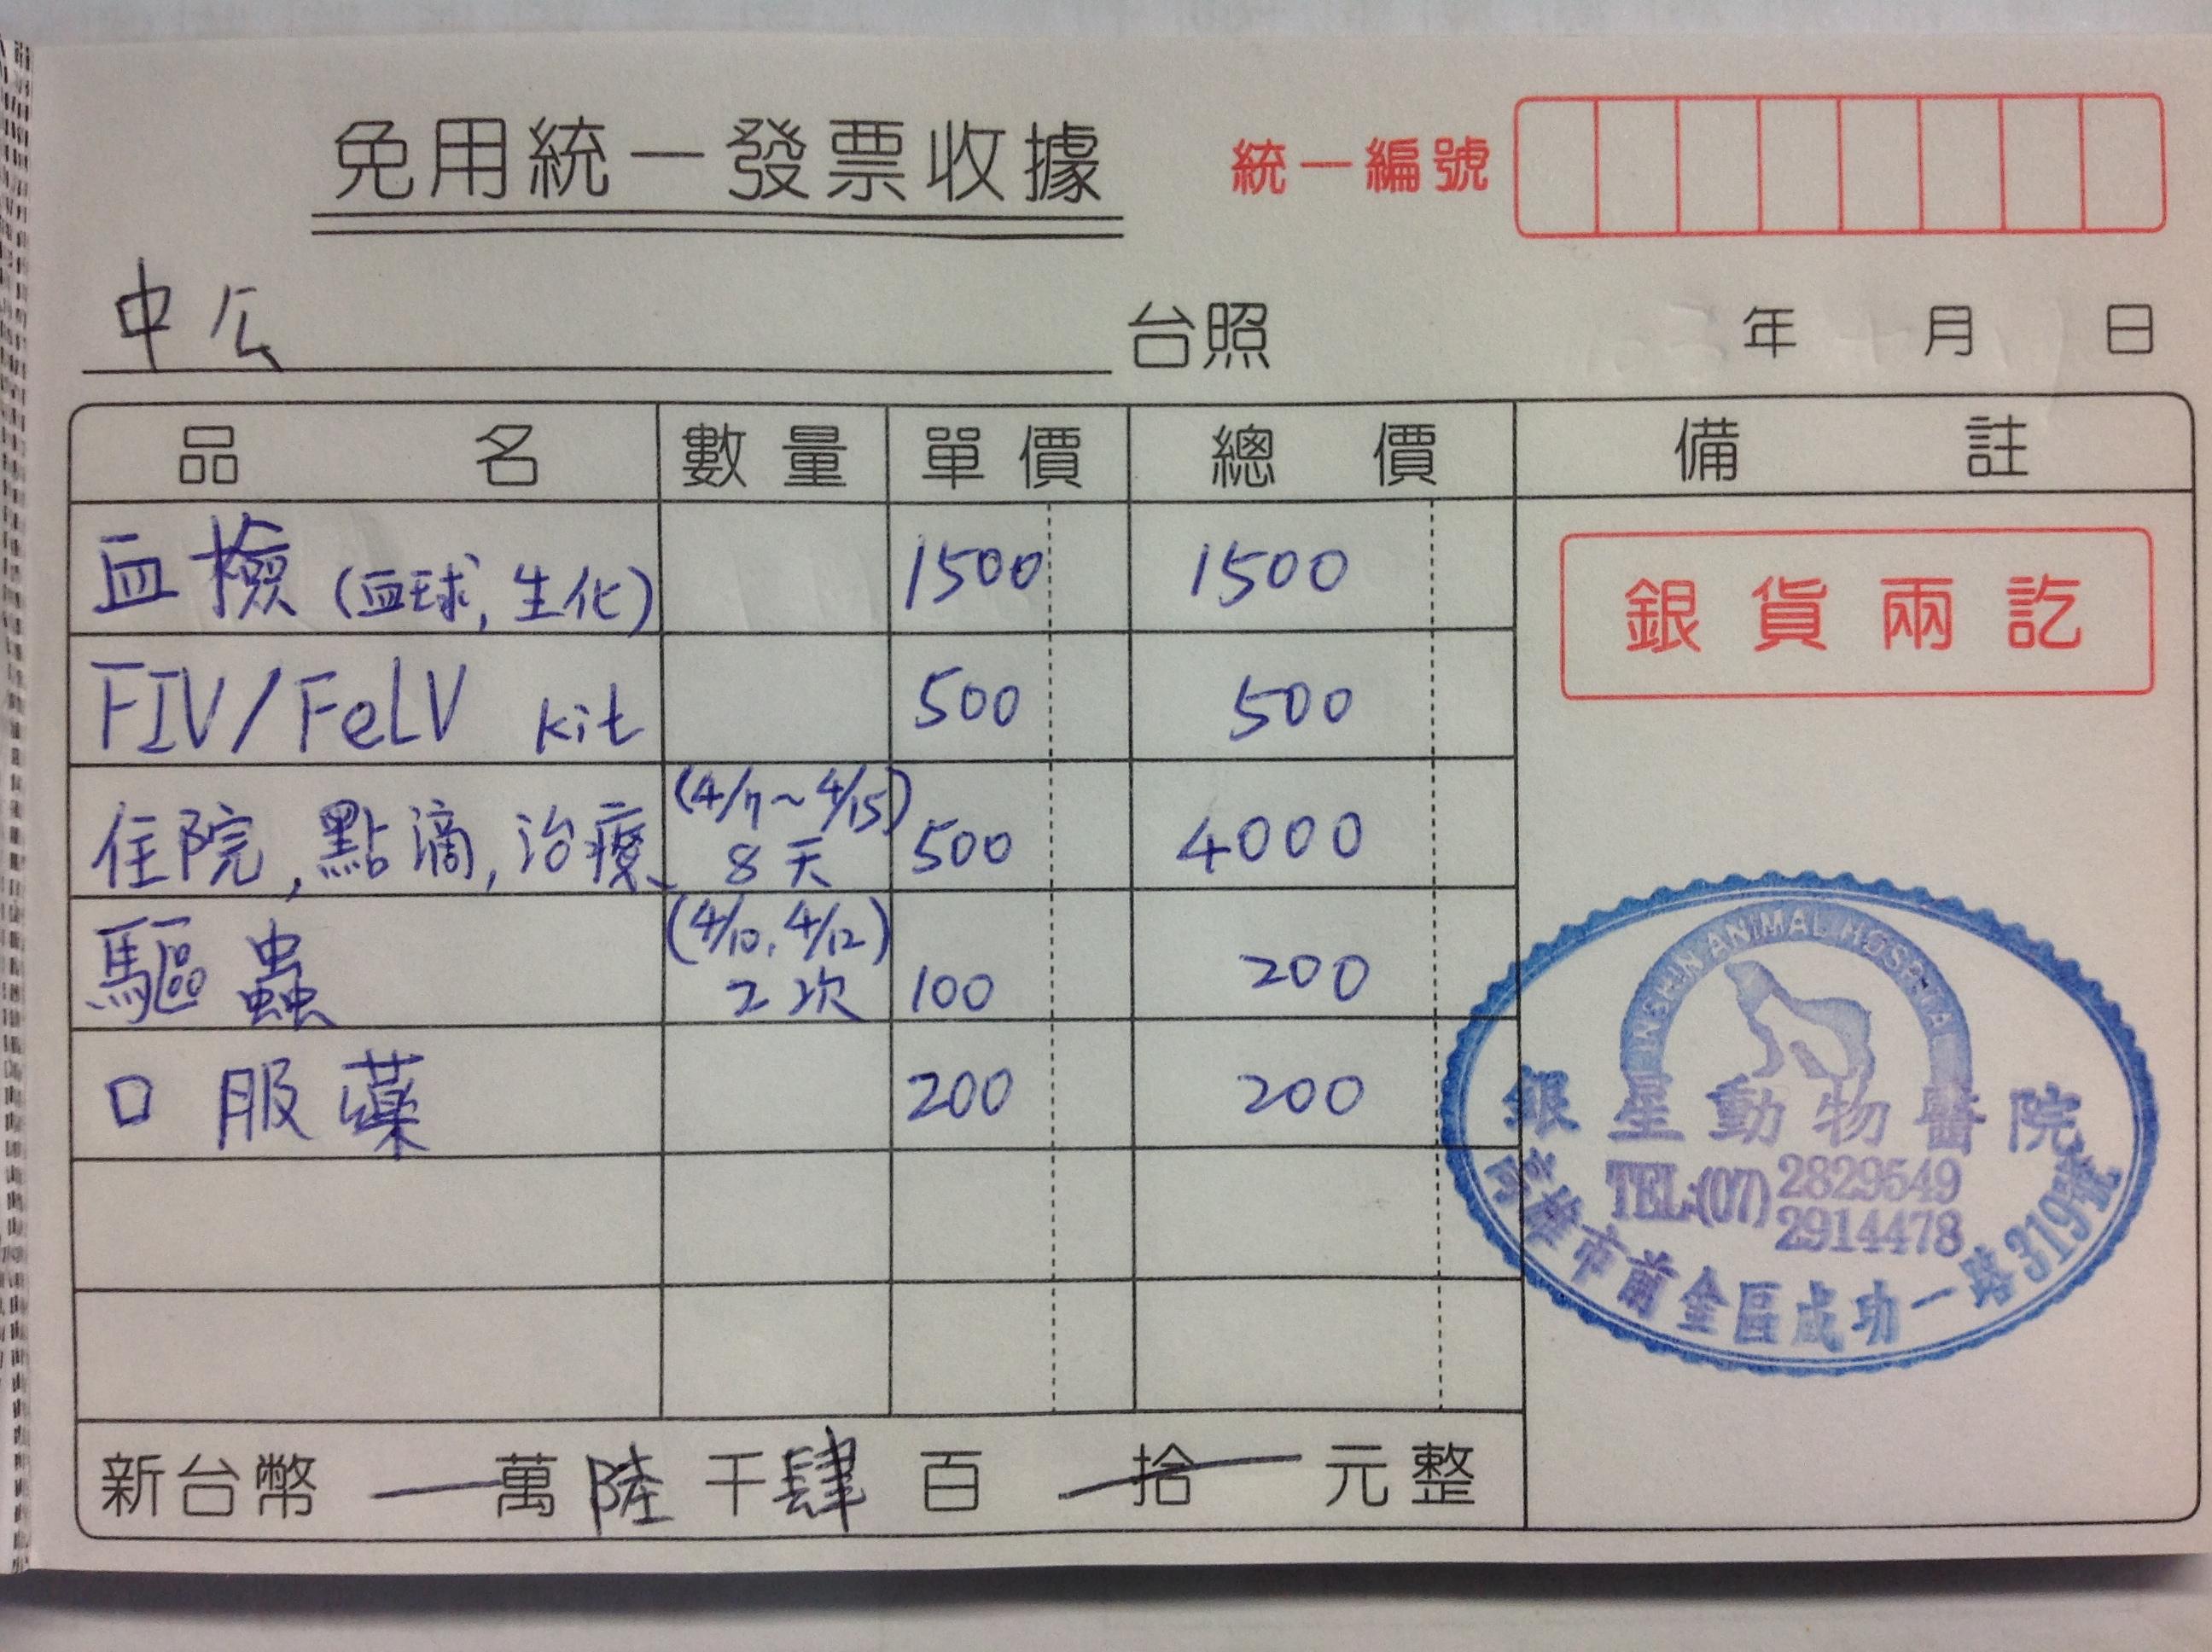 免用統一發票收據 統一編號
中公 台照 年 月 日
品名 數量 單價 總價 備註
血檢 (血球, 生化) 1500 1500
銀貨兩訖
FIV/FeLV kit 500 500
住院, 點滴, 治療 (4/7~4/15) 8天 500 4000
驅蟲 (4/10, 4/12) 2次 100 200
口服藥 200 200
ANIMAL HOSPITAL
銀星動物醫院
TEL:(07) 2829549
2914478
高雄市前金區成功一路319號
新台幣 一萬陸千肆百 拾 元整